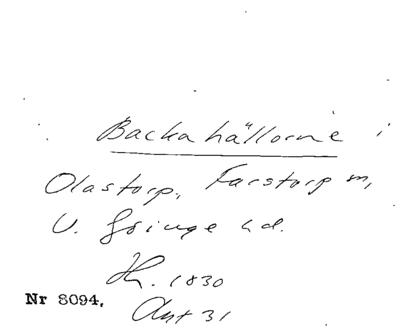 Backahällorne i
Olastorp, Farstorp m,
V. Göinge hd.
Hn. 1830
Nr 8094. Akt 31